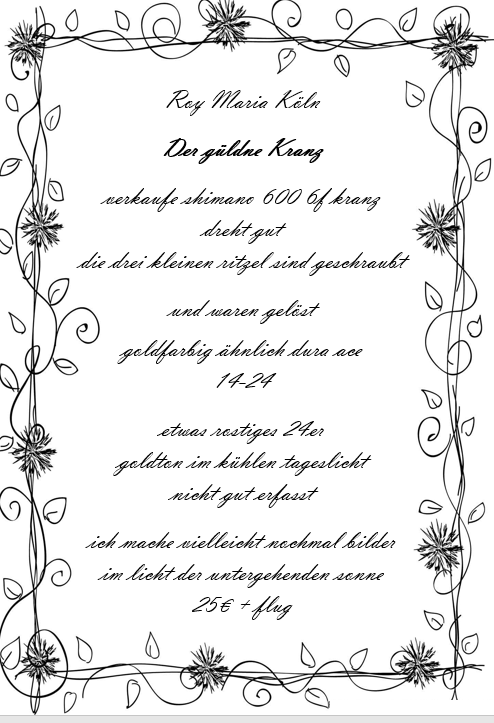 Roy Maria Köln
Der güldne Kranz
verkaufe shimano 600 6f kranz
dreht gut
die drei kleinen ritzel sind geschraubt
und waren gelöst
goldfarbig ähnlich dura ace
14-24
etwas rostiges 24er
goldton im kühlen tageslicht
nicht gut erfasst
ich mache vielleicht nochmal bilder
im licht der untergehenden sonne
25€ + flug